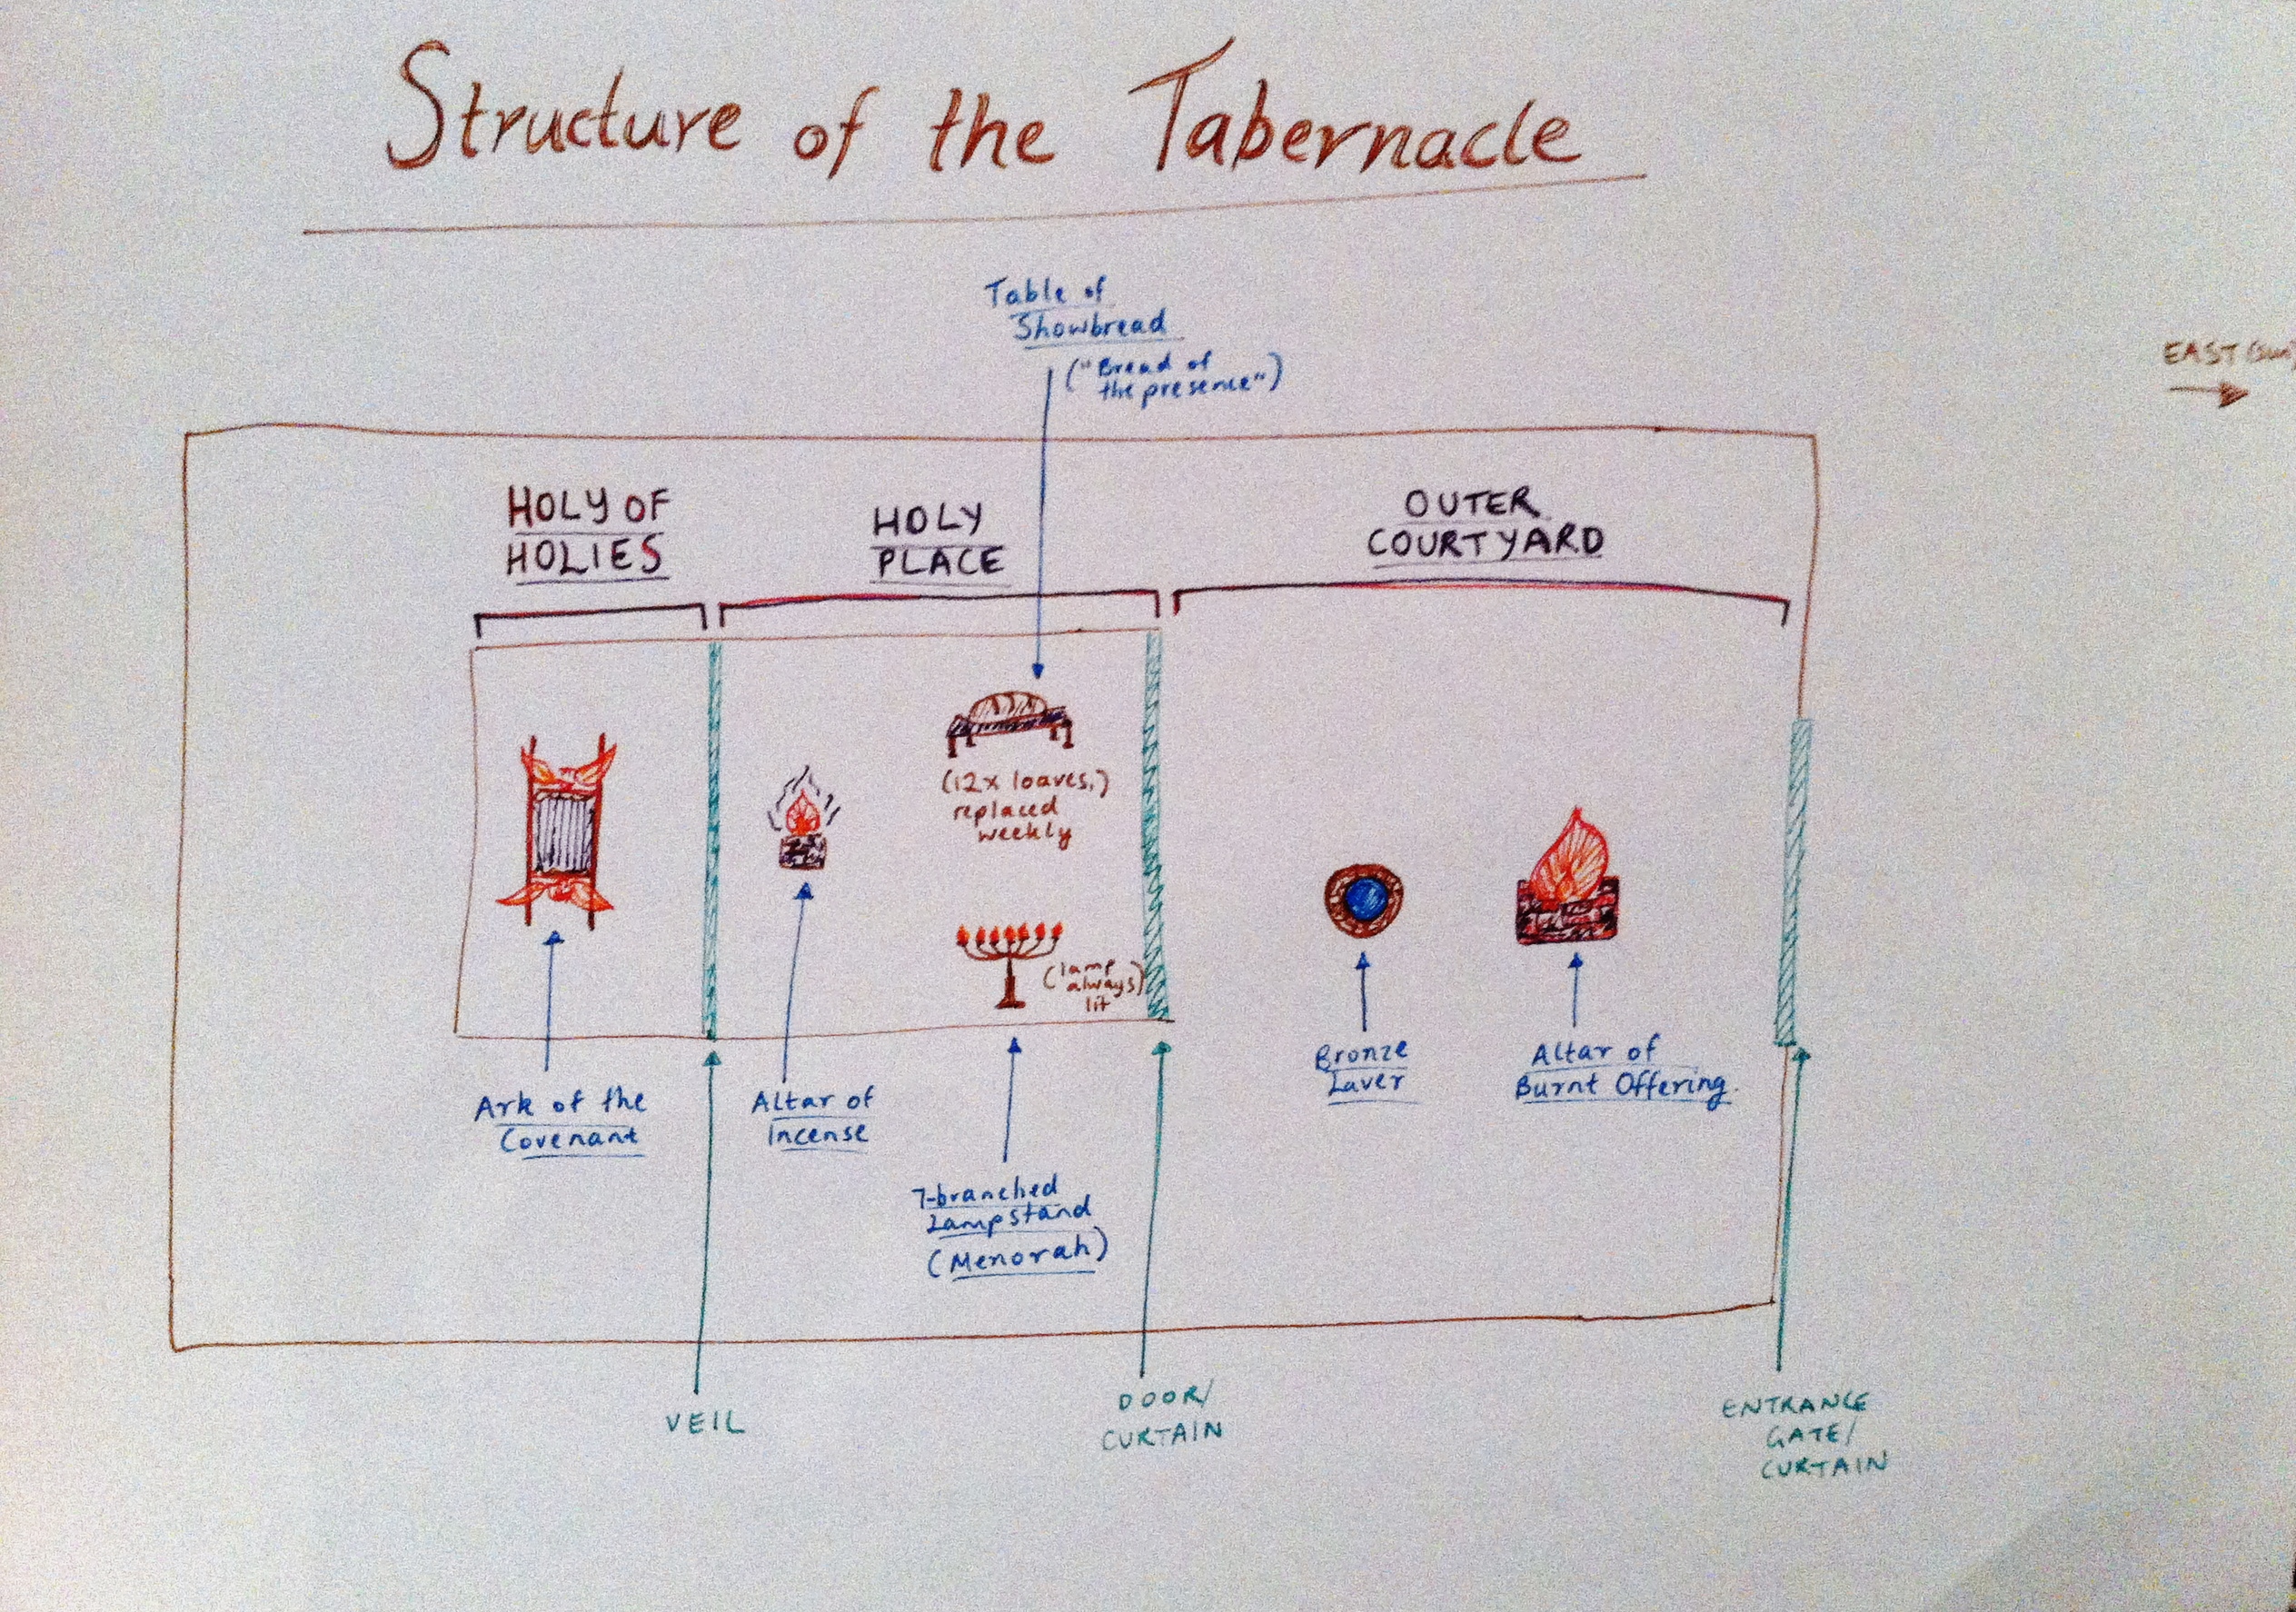 Structure of the Tabernacle
Table of
Showbread
("Bread of
the presence")
EAST (sun)
HOLY OF
HOLIES
HOLY
PLACE
OUTER
COURTYARD
(12x loaves,)
replaced
weekly
(lamp
always)
lit
Ark of the
Covenant
Altar of
Incense
7-branched
Lampstand
(Menorah)
Bronze
Laver
Altar of
Burnt Offering.
VEIL
DOOR/
CURTAIN
ENTRANCE
GATE/
CURTAIN